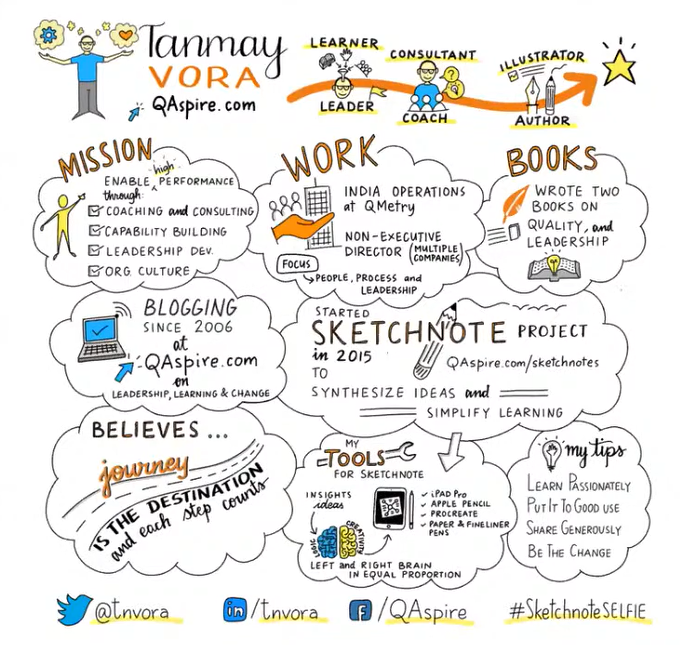 Tanmay
VORA
QAspire.com
LEARNER
LEADER
CONSULTANT
COACH
ILLUSTRATOR
AUTHOR
MISSION
ENABLE high PERFORMANCE
through:
COACHING and CONSULTING
CAPABILITY BUILDING
LEADERSHIP DEV.
ORG. CULTURE
WORK
INDIA OPERATIONS
at QMetry
NON-EXECUTIVE
DIRECTOR (MULTIPLE
COMPANIES)
FOCUS
PEOPLE, PROCESS and
LEADERSHIP
BOOKS
WROTE TWO
BOOKS ON
QUALITY, and
LEADERSHIP
BLOGGING
SINCE 2006
at
QAspire.com
on
LEADERSHIP, LEARNING & CHANGE
STARTED
SKETCHNOTE PROJECT
in 2015
QAspire.com/sketchnotes
TO
SYNTHESIZE IDEAS and
SIMPLIFY LEARNING
BELIEVES ...
journey
IS THE DESTINATION
and each step counts
MY
TOOLS
FOR SKETCHNOTE
INSIGHTS
ideas
LOGIC
CREATIVITY
iPAD Pro
APPLE PENCIL
PROCREATE
PAPER & FINELINER
PENS
LEFT and RIGHT BRAIN
IN EQUAL PROPORTION
my tips
LEARN PASSIONATELY
PUT IT TO GOOD USE
SHARE GENEROUSLY
BE THE CHANGE
@tnvora
in /tnvora
f /QAspire
#SketchnoteSELFIE